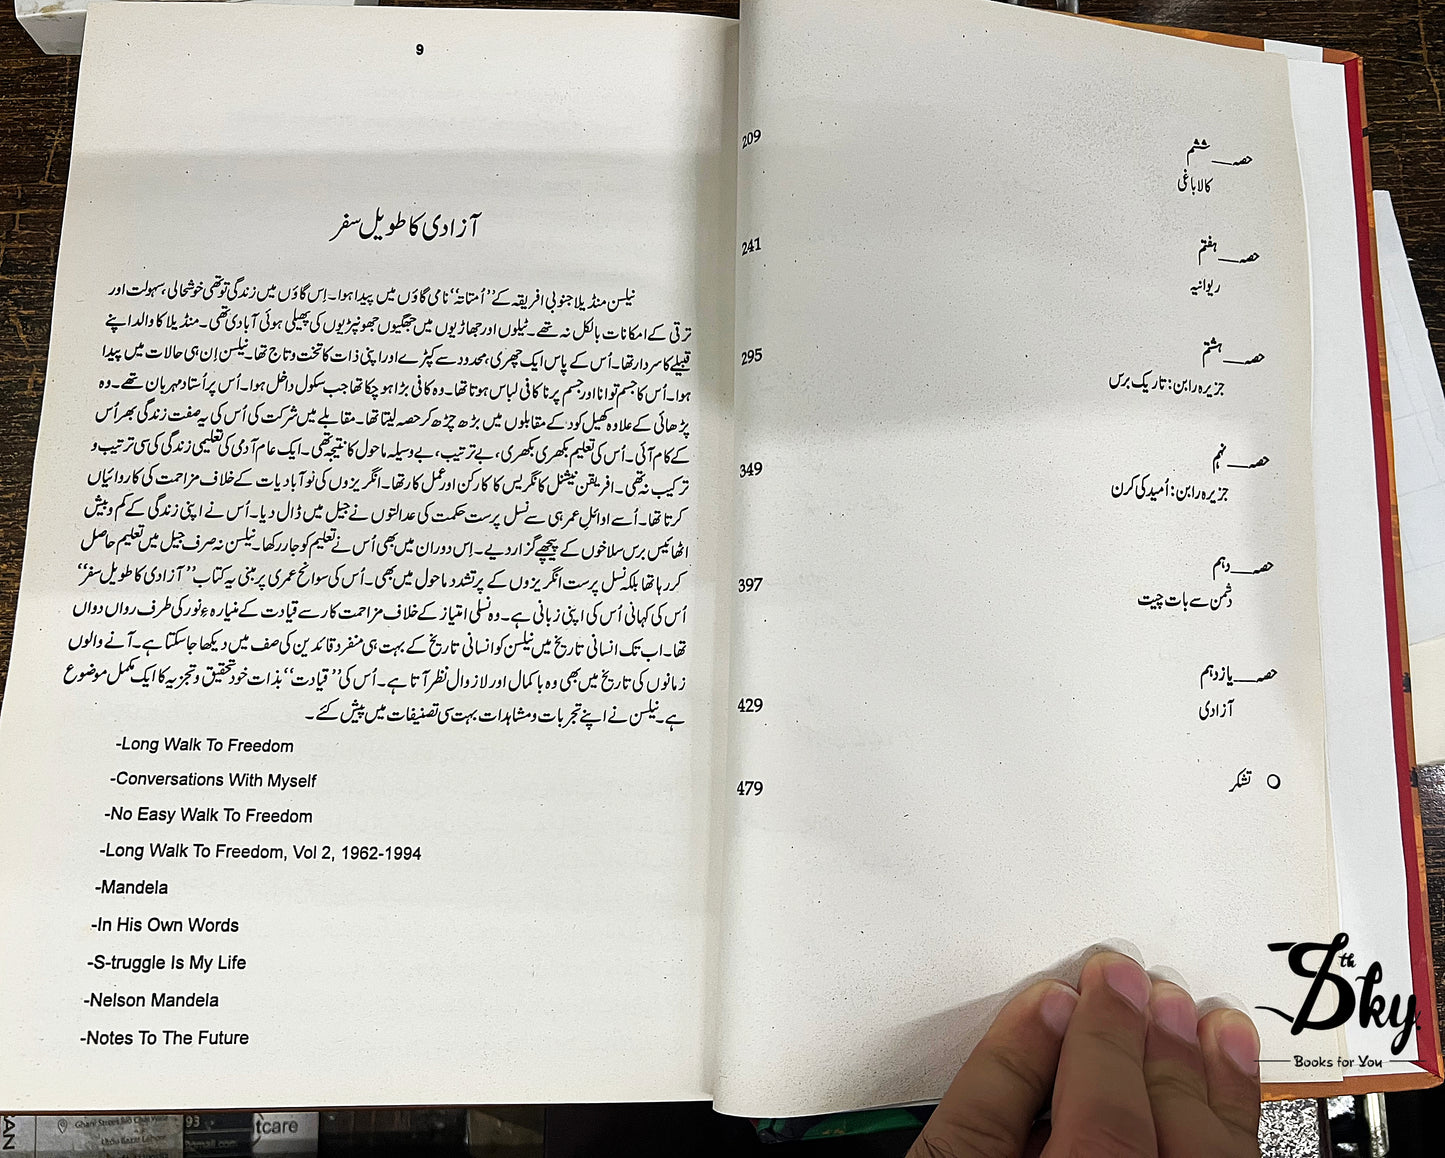 209
حصہ ششم
کالا باغی
241
حصہ ہفتم
ریوانیہ
295
حصہ ہشتم
جزیرہ رابن: تاریک برس
349
حصہ نہم
جزیرہ رابن: اُمید کی کرن
397
حصہ دہم
دشمن سے بات چیت
429
حصہ یازدہم
آزادی
479
تشکر
9
آزادی کا طویل سفر
نیلسن منڈیلا جنوبی افریقہ کے ’’اُمتاتہ‘‘ نامی گاؤں میں پیدا ہوا۔ اِس گاؤں میں زندگی تو تھی خوشحالی، سہولت اور
ترقی کے امکانات بالکل نہ تھے۔ ٹیلوں اور جھاڑیوں میں جھگیوں جھونپڑیوں کی پھیلی ہوئی آبادی تھی۔ منڈیلا کا والد اپنے
قبیلے کا سردار تھا۔ اُس کے پاس ایک چھری، محدود سے کپڑے اور اپنی ذات کا تخت و تاج تھا۔ نیلسن اِن ہی حالات میں پیدا
ہوا۔ اُس کا جسم توانا اور جسم پر ناکافی لباس ہوتا تھا۔ وہ کافی بڑا ہو چکا تھا جب سکول داخل ہوا۔ اُس پر اُستاد مہربان تھے۔ وہ
پڑھائی کے علاوہ کھیل کود کے مقابلوں میں بڑھ چڑھ کر حصہ لیتا تھا۔ مقابلے میں شرکت کی اُس کی یہ صفت زندگی بھر اُس
کے کام آئی۔ اُس کی تعلیم بکھری بکھری، بے ترتیب، بے وسیلہ ماحول کا نتیجہ تھی۔ ایک عام آدمی کی تعلیمی زندگی کی سی ترتیب و
ترکیب نہ تھی۔ افریقن نیشنل کانگریس کا کارکن اور عمل کار تھا۔ انگریزوں کی نو آبادیات کے خلاف مزاحمت کی کاروائیاں
کرتا تھا۔ اُسے اوائل عمر ہی سے نسل پرست حکمت کی عدالتوں نے جیل میں ڈال دیا۔ اُس نے اپنی زندگی کے کم و بیش
اٹھائیس برس سلاخوں کے پیچھے گزار دیے۔ اِس دوران میں بھی اُس نے تعلیم کو جار رکھا۔ نیلسن نہ صرف جیل میں تعلیم حاصل
کر رہا تھا بلکہ نسل پرست انگریزوں کے پر تشدد ماحول میں بھی۔ اُس کی سوانح عمری پر مبنی یہ کتاب ’’آزادی کا طویل سفر‘‘
اُس کی کہانی اُس کی اپنی زبانی ہے۔ وہ نسلی امتیاز کے خلاف مزاحمت کار سے قیادت کے منیارہ ءِ نور کی طرف رواں دواں
تھا۔ اب تک انسانی تاریخ میں نیلسن کو انسانی تاریخ کے بہت ہی منفرد قائدین کی صف میں دیکھا جا سکتا ہے۔ آنے والوں
زمانوں کی تاریخ میں بھی وہ باکمال اور لازوال نظر آتا ہے۔ اُس کی ’’قیادت‘‘ بذات خود تحقیق و تجزیہ کا ایک مکمل موضوع
ہے۔ نیلسن نے اپنے تجربات و مشاہدات بہت سی تصنیفات میں پیش کئے۔
-Long Walk To Freedom
-Conversations With Myself
-No Easy Walk To Freedom
-Long Walk To Freedom, Vol 2, 1962-1994
-Mandela
-In His Own Words
-S-truggle Is My Life
-Nelson Mandela
-Notes To The Future
Sky
th
Books for You
AN
93
tcare